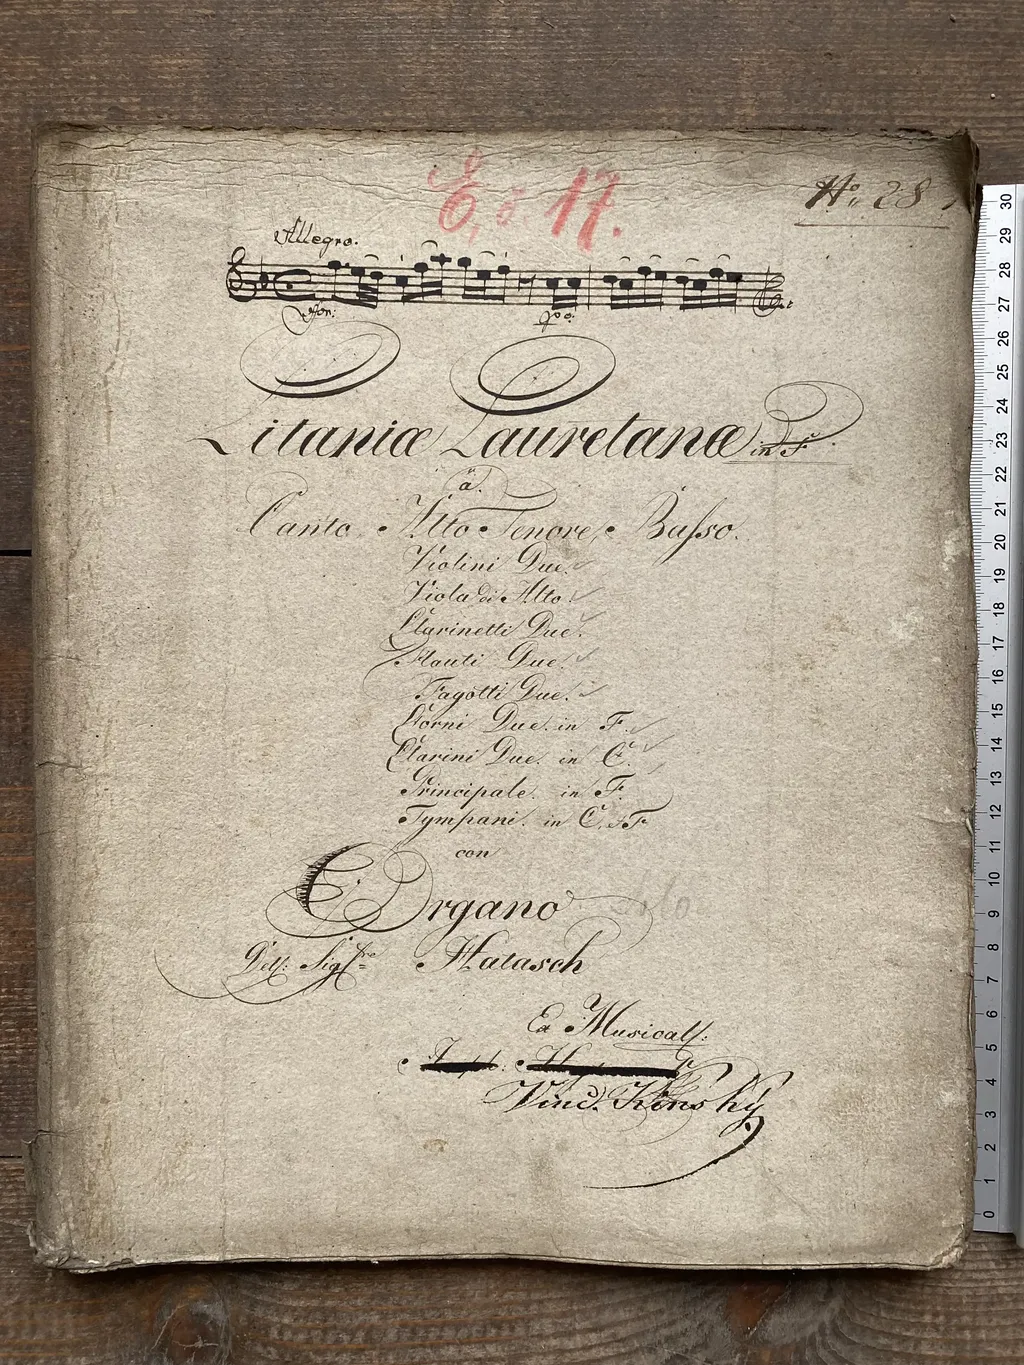 E, č. 17.
No. 28
Allegro.
For:
po:
Litaniæ Lauretanæ in F.
a.
Canto Alto Tenore, Basso.
Violini Due.
Viola di Alto.
Clarinetti Due.
Flauti Due.
Fagotti Due.
Corni Due. in F.
Clarini Due. in C.
Principale. in F.
Tympani. in C. et F
con
Organo
Solo
Del: Sig:re Hatasch
Ex Musicalʃ:
Vinc. Kinský
30
29
28
27
26
25
24
23
22
21
20
19
18
17
16
15
14
13
12
11
10
9
8
7
6
5
4
3
2
1
0